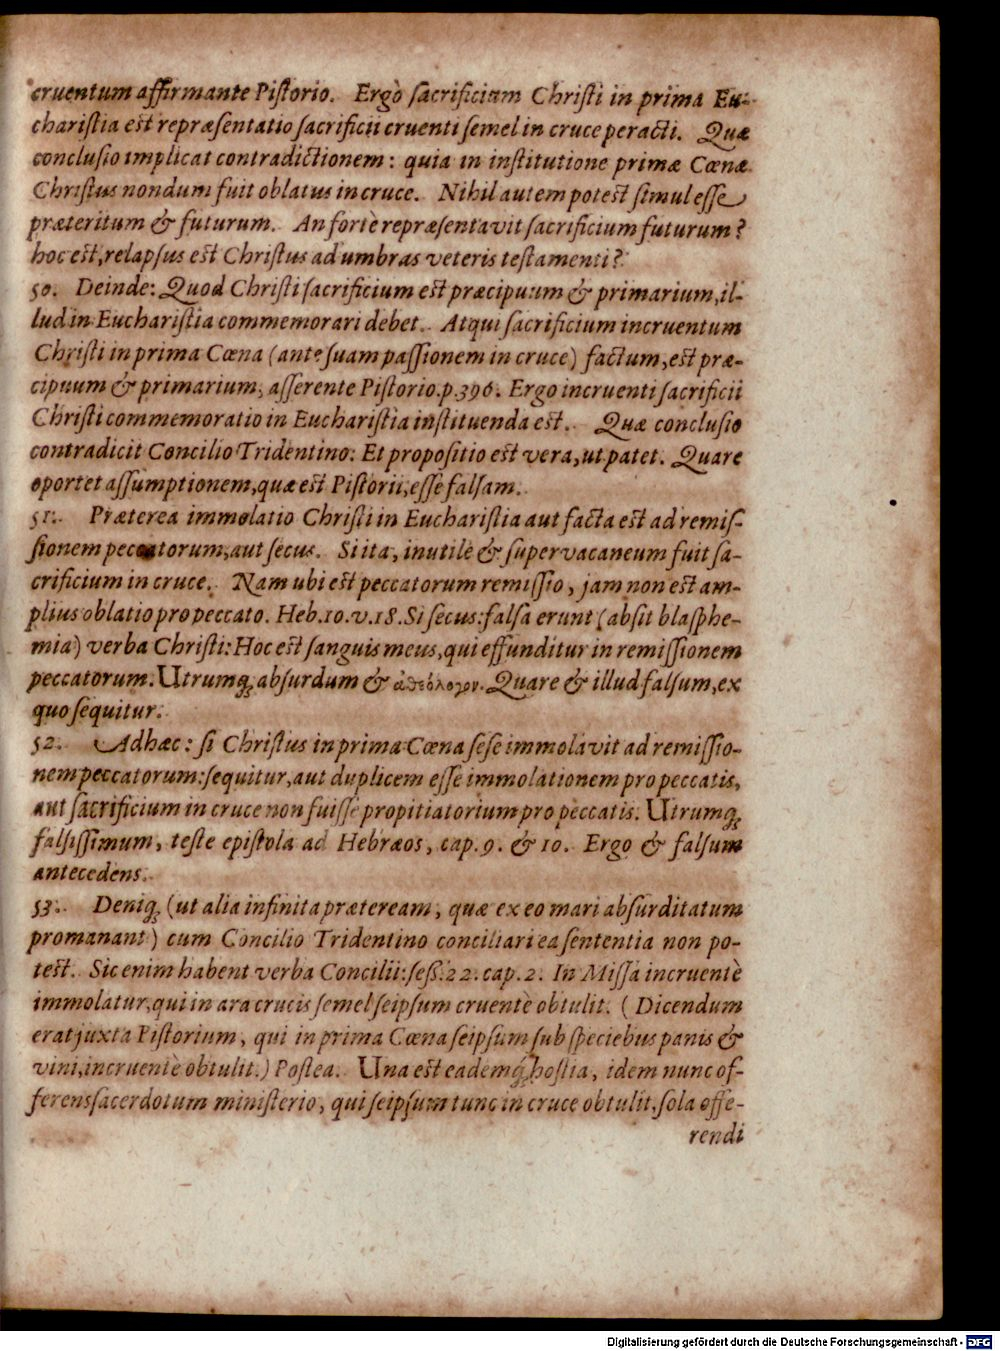 cruentum affirmante Pistorio. Ergò sacrificium Christi in prima Eu-
charistia est repræsentatio sacrificii cruenti semel in cruce peracti. Quæ
conclusio implicat contradictionem: quia in institutione primæ Cœnæ
Christus nondum fuit oblatus in cruce. Nihil autem potest simul esse
præteritum & futurum. An fortè repræsentavit sacrificium futurum?
hoc est, relapsus est Christus ad umbras veteris testamenti?
50. Deinde: Quod Christi sacrificium est præcipuum & primarium, il-
lud in Eucharistia commemorari debet. Atqui sacrificium incruentum
Christi in prima Cœna (ante suam passionem in cruce) factum, est præ-
cipuum & primarium, asserente Pistorio. p. 396. Ergo incruenti sacrificii
Christi commemoratio in Eucharistia instituenda est. Quæ conclusio
contradicit Concilio Tridentino: Et propositio est vera, ut patet. Quare
oportet assumptionem, quæ est Pistorii, esse falsam.
51. Præterea immolatio Christi in Eucharistia aut facta est ad remis-
sionem peccatorum, aut secus. Si ita, inutile & supervacaneum fuit sa-
crificium in cruce. Nam ubi est peccatorum remissio, jam non est am-
plius oblatio pro peccato. Heb. 10. v. 18. Si secus: falsa erunt (absit blasphe-
mia) verba Christi: Hoc est sanguis meus, qui effunditur in remissionem
peccatorum. Utrumq; absurdum & ἀθεόλογον. Quare & illud falsum, ex
quo sequitur.
52. Adhæc: si Christus in prima Cœna sese immolavit ad remissio-
nem peccatorum: sequitur, aut duplicem esse immolationem pro peccatis,
aut sacrificium in cruce non fuisse propitiatorium pro peccatis. Utrumq;
falsissimum, teste epistola ad Hebræos, cap. 9. & 10. Ergo & falsum
antecedens.
53. Deniq; (ut alia infinita præteream, quæ ex eo mari absurditatum
promanant) cum Concilio Tridentino conciliari ea sententia non po-
test. Sic enim habent verba Concilii: sess. 22. cap. 2. In Missa incruentè
immolatur, qui in ara crucis semel seipsum cruentè obtulit. (Dicendum
erat juxta Pistorium, qui in prima Cœna seipsum sub speciebus panis &
vini, incruentè obtulit.) Postea. Una est eademq; hostia, idem nunc of-
ferens sacerdotum ministerio, qui seipsum tunc in cruce obtulit, sola offe-
rendi
Digitalisierung gefördert durch die Deutsche Forschungsgemeinschaft - DFG